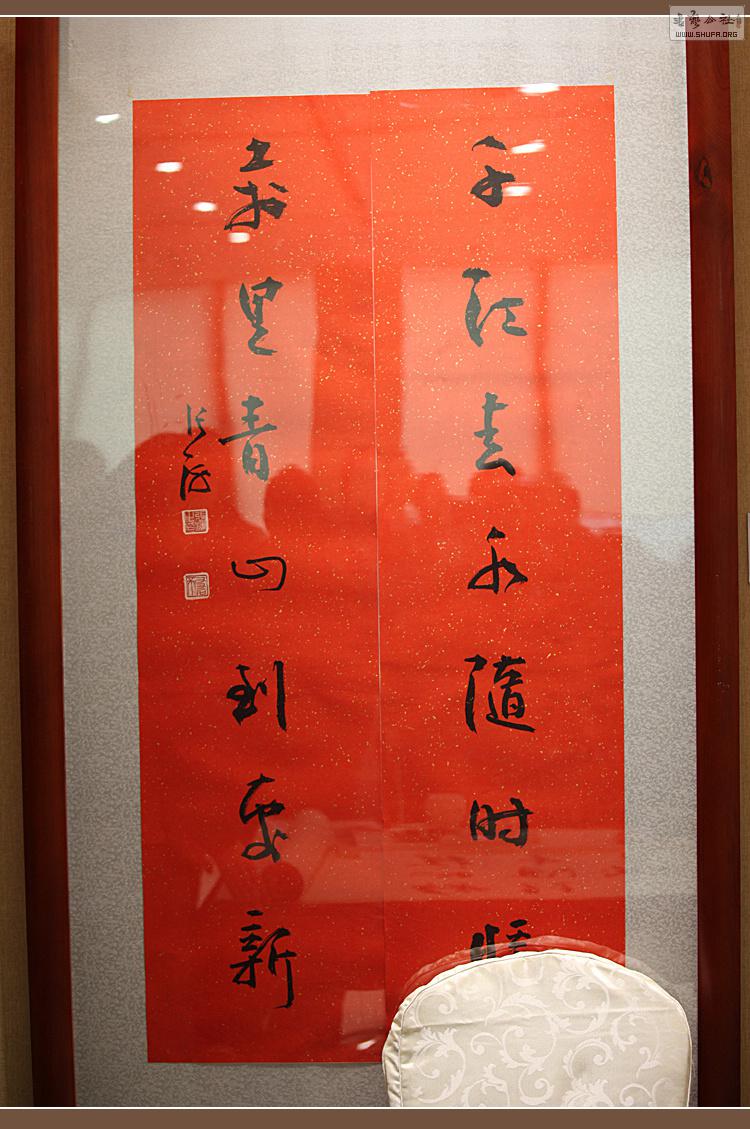 书艺公社
WWW.SHUFA.ORG
千江水隨时
萬里青山到處新
张海